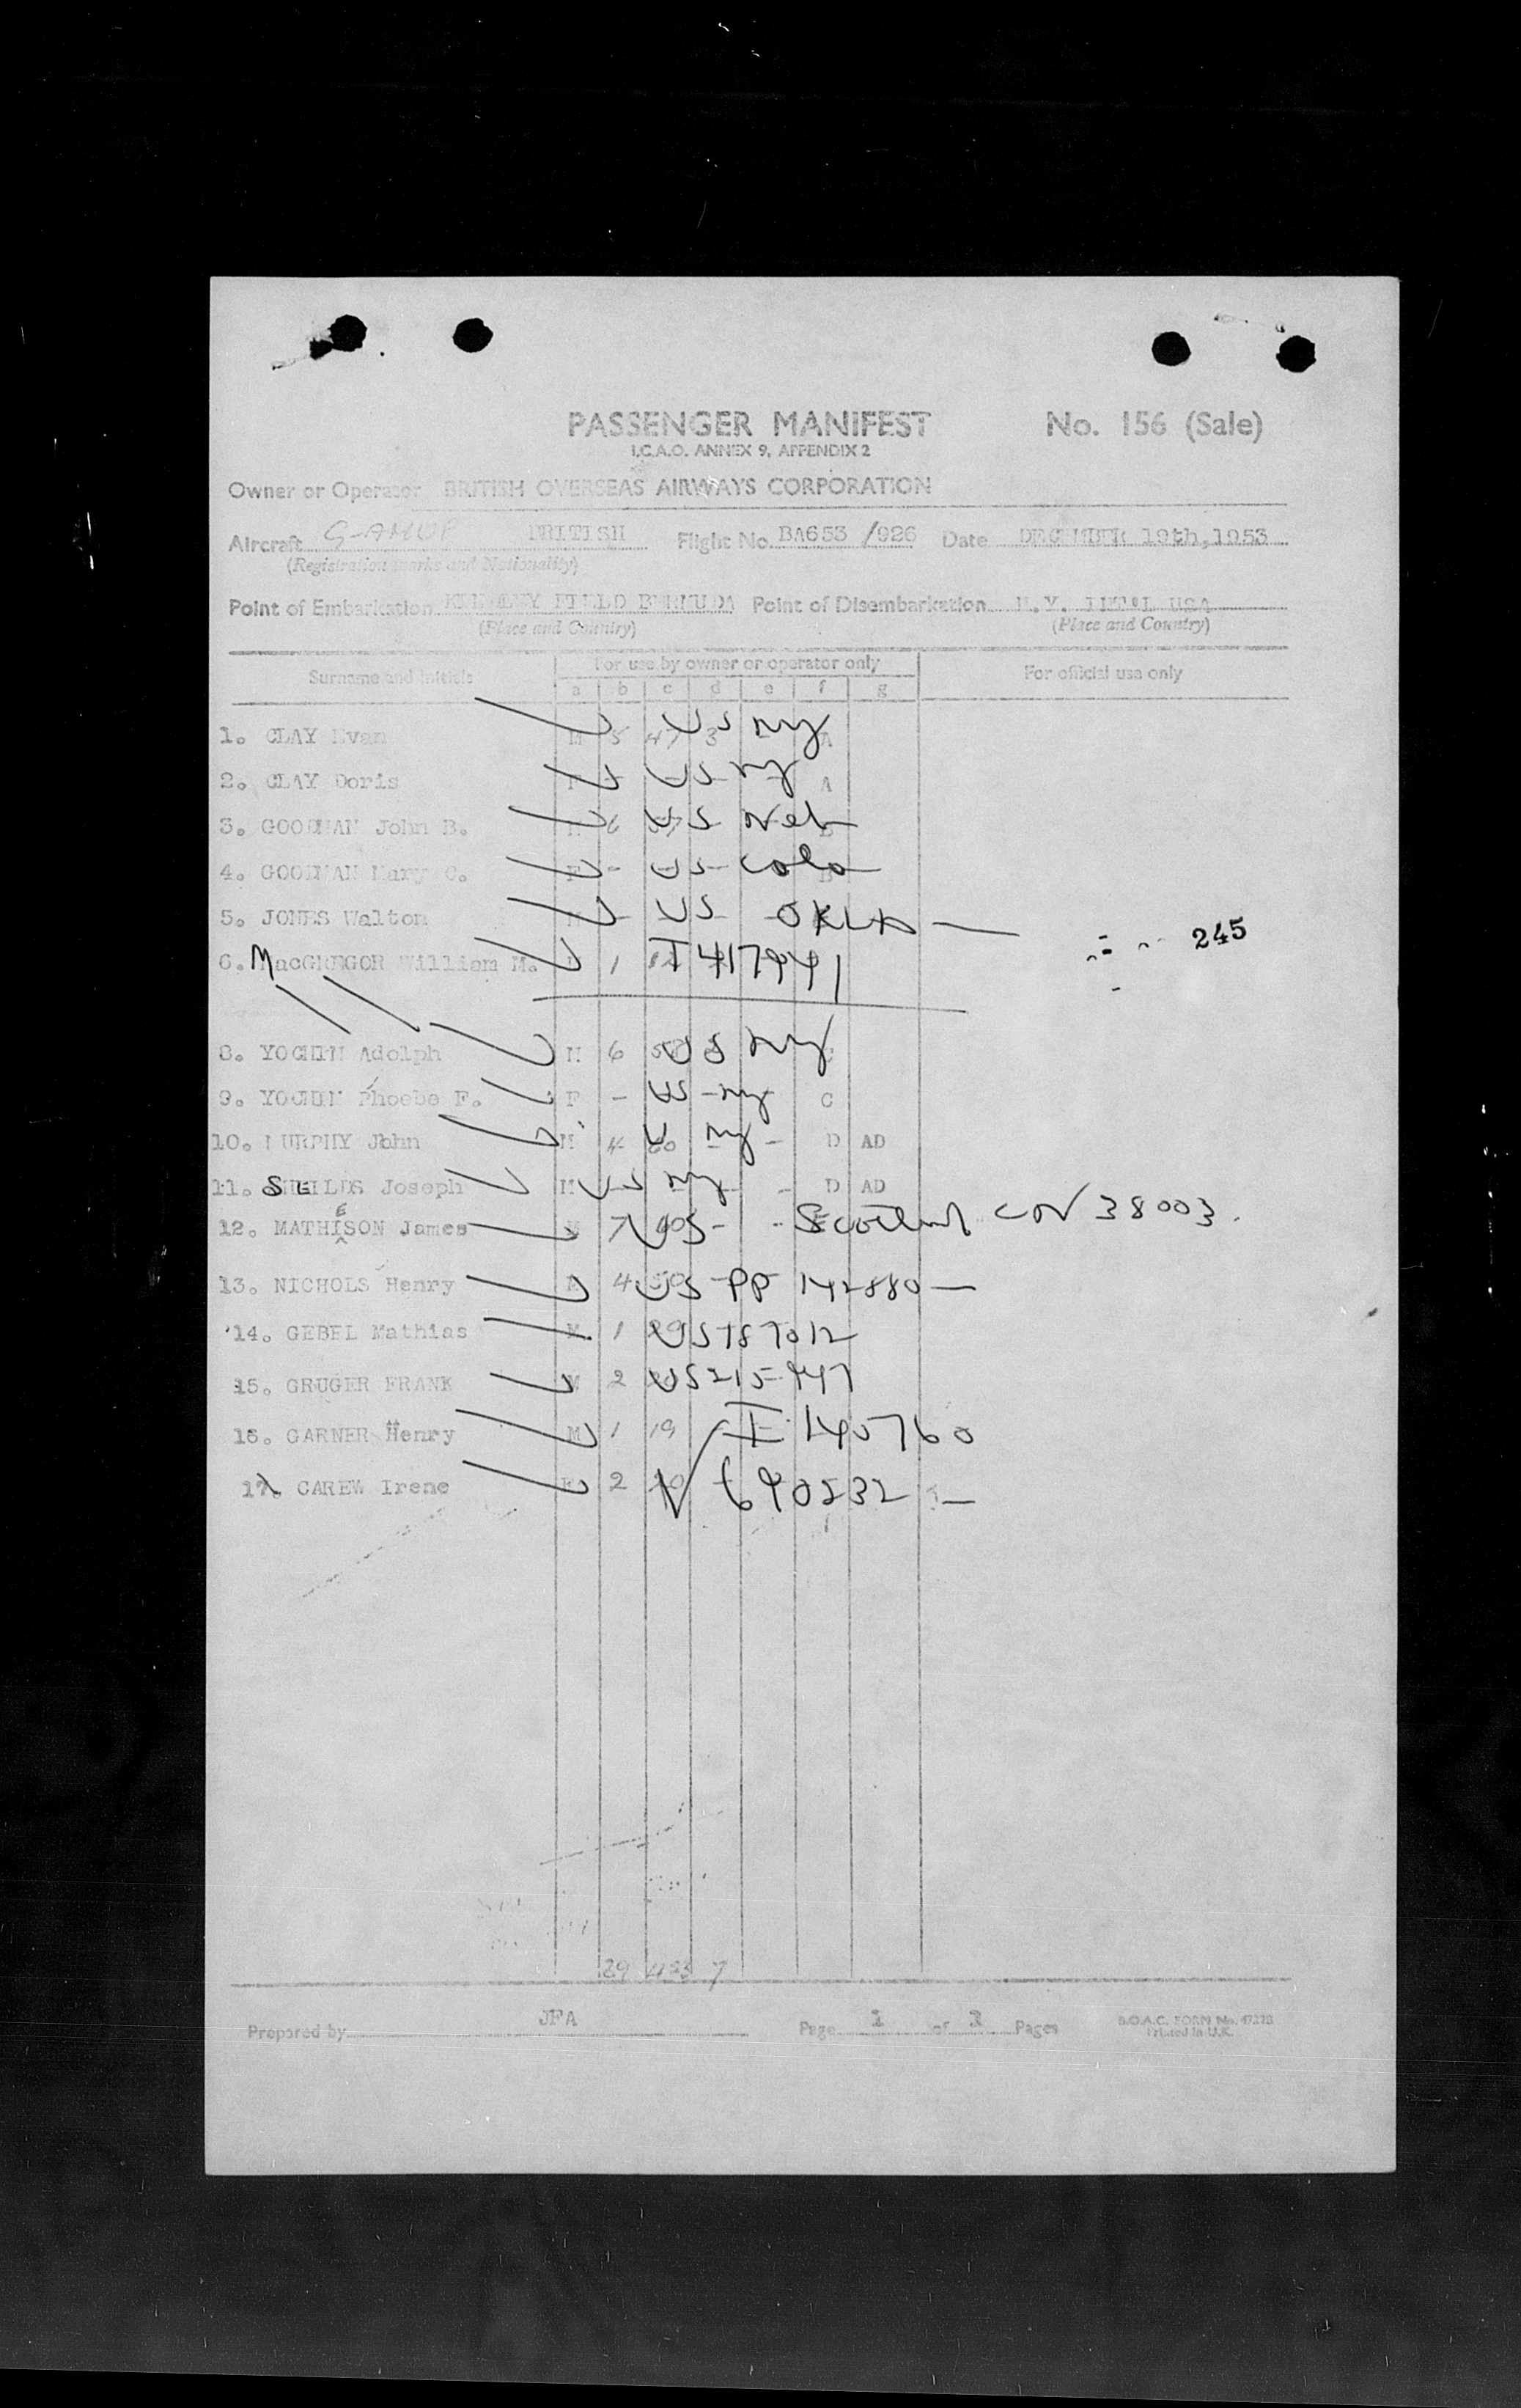 PASSENGER MANIFEST No. 156 (Sale)
I.C.A.O. ANNEX 9, APPENDIX 2
Owner or Operator BRITISH OVERSEAS AIRWAYS CORPORATION
Aircraft BRITISH Flight No. BA653 /926 Date DECEMBER 19th, 1953
(Registration marks and Nationality)
Point of Embarkation FIELD BERMUDA Point of Disembarkation N.Y. USA
(Place and Country) (Place and Country)
Surname and Initials For use by owner or operator only For official use only
a b c d e f g
1. CLAY Evan M 5 47 3 US NY A
2. CLAY Doris US NY A
3. GOODMAN John B. 6 US Neb
4. GOODMAN Mary C. F - US Colo
5. JONES Walton US OKLA
245
6. MacGREGOR William M. 1 I 417941
8. YOCHIM Adolph M 6 US NY
9. YOCHIM Phoebe F. F - US NY C
10. MURPHY John M 4 60 U NY - D AD
11. Joseph M US NY D AD
12. MATHIESON James 7 US Scotland CON 38003.
13. NICHOLS Henry 4 US PP 142880
14. GEBEL Mathias 1 US 787012
15. GRUGER FRANK M 2 US 215947
16. GARNER Henry M 1 19 I 145760
17. CAREW Irene 2 V 690232
29 7
Prepared by JFA Page 1 of Pages B.O.A.C. FORM No.
Printed in U.K.